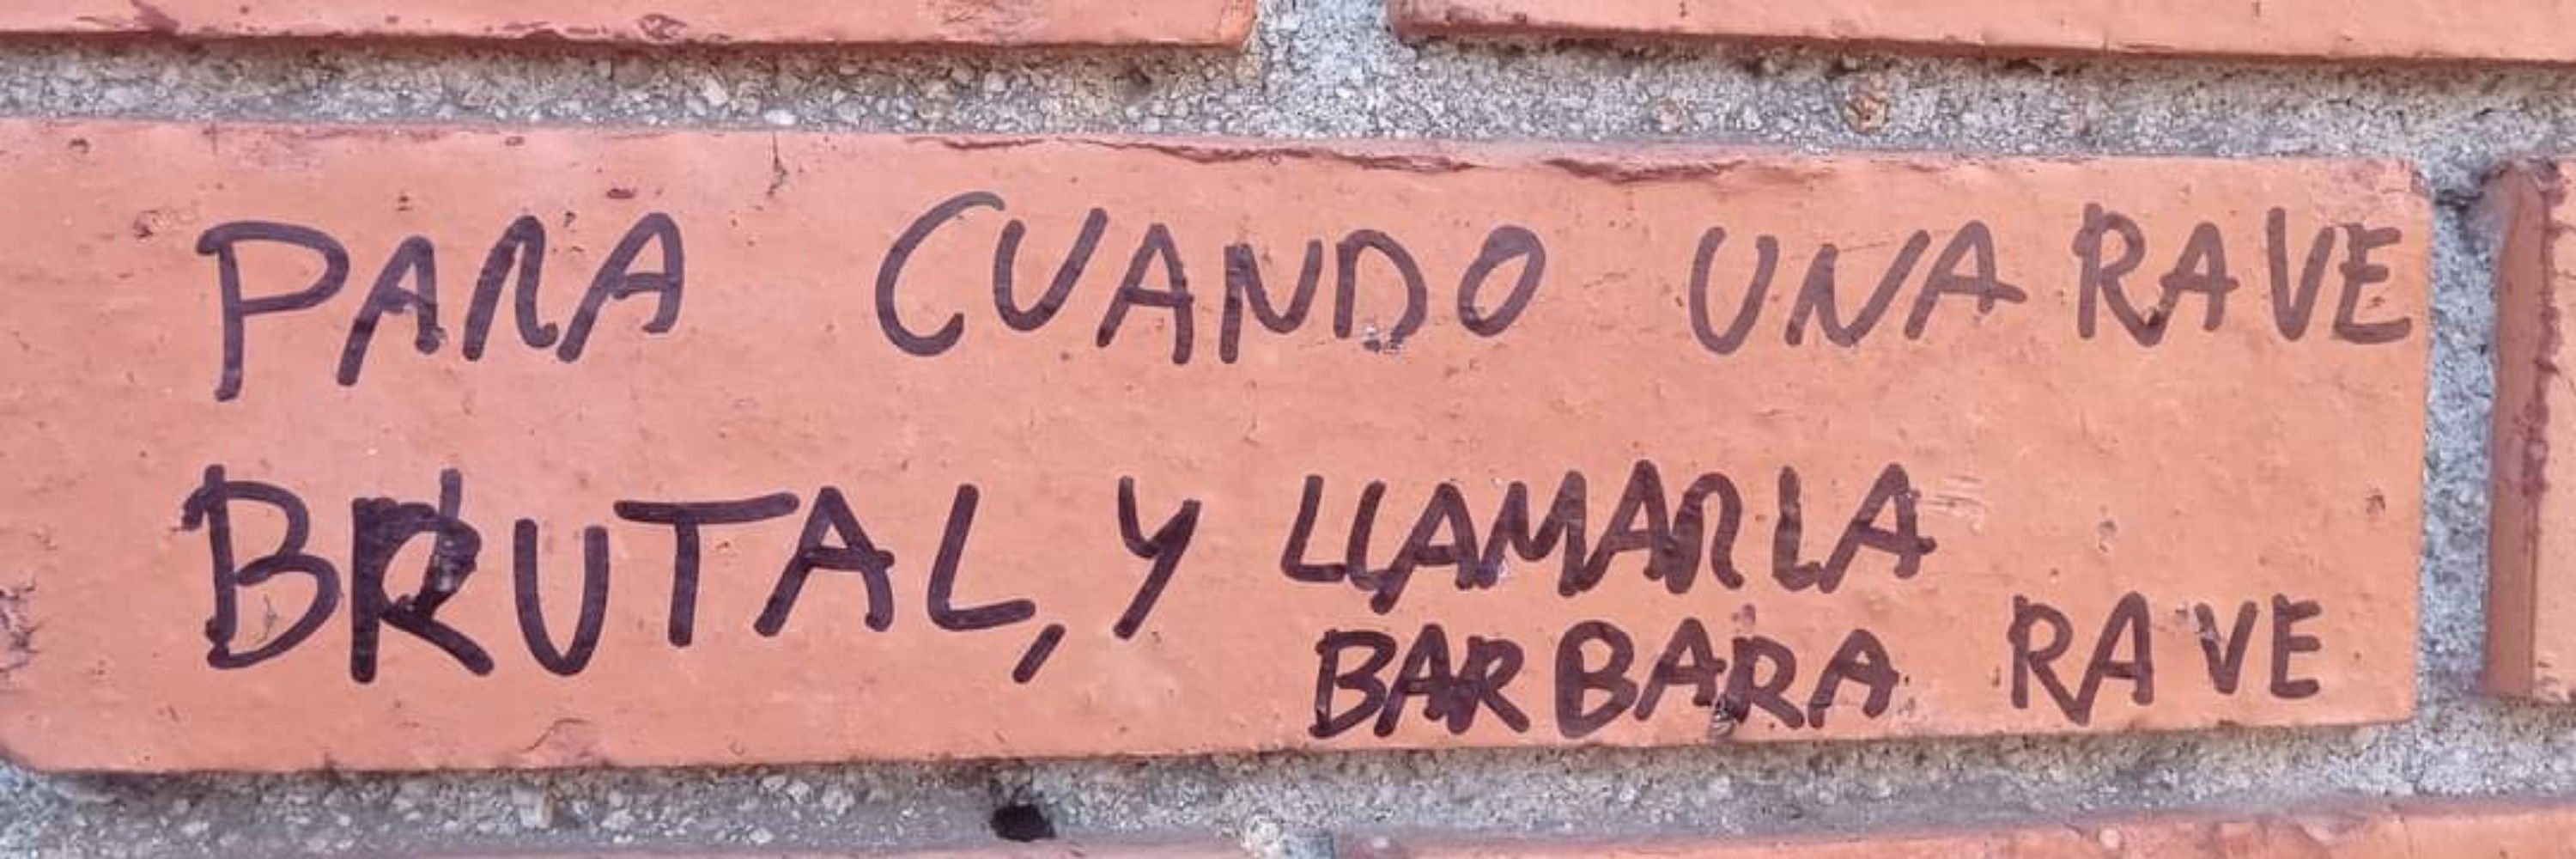 PARA CUANDO UNA RAVE
BRUTAL, Y LLAMARLA
BARBARA RAVE